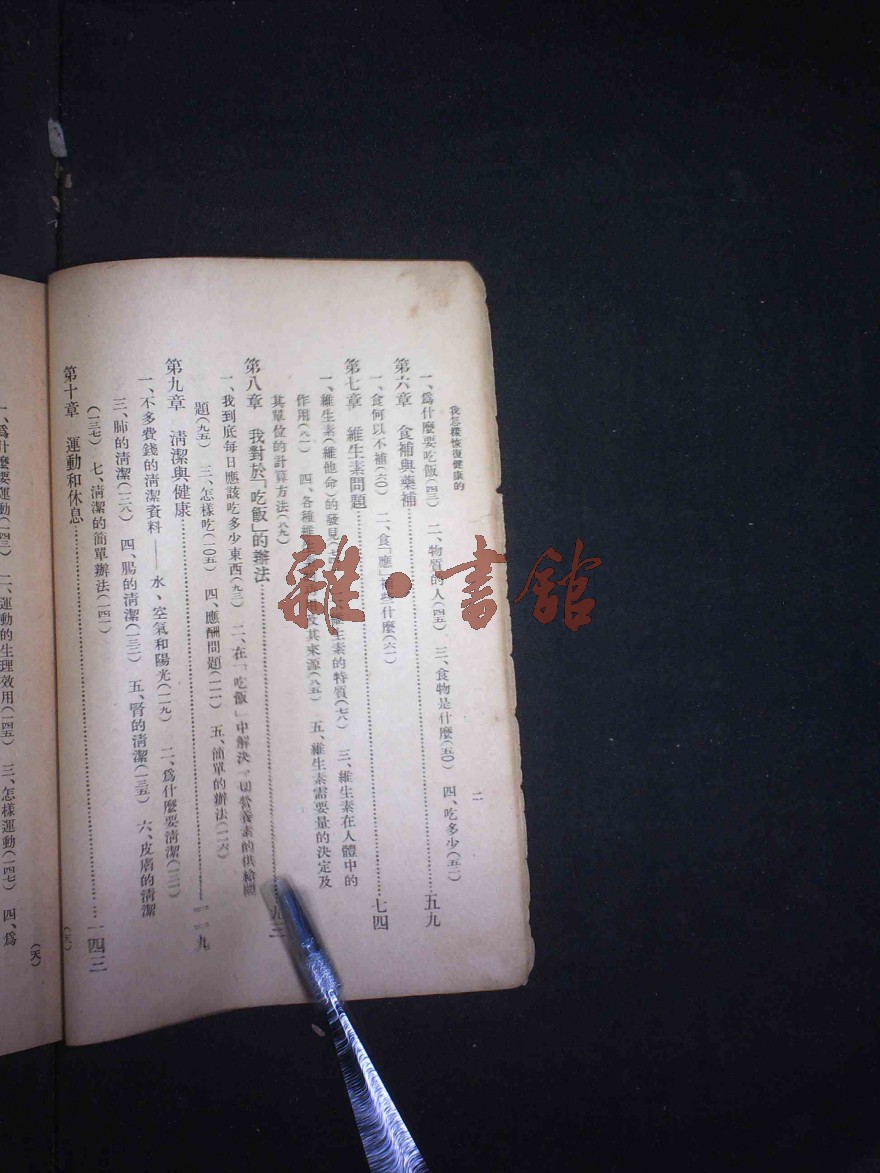 我怎樣恢復健康的
二
一、爲什麼要吃飯(四三) 二、物質的人(四五) 三、食物是什麼(五〇) 四、吃多少(五二)
第六章 食補與藥補……五九
一、食何以不補(六〇) 二、食「應」補些什麼(六一)
第七章 維生素問題……七四
一、維生素(維他命)的發見 維生素的特質(七八) 三、維生素在人體中的
作用(八一) 四、各種維生 及其來源(八五) 五、維生素需要量的決定及
其單位的計算方法(八九)
第八章 我對於「吃飯」的辦法……九三
一、我到底每日應該吃多少東西(九三) 二、在「吃飯」中解決一切營養素的供給問
題(九五) 三、怎樣吃(一〇五) 四、應酬問題(一一一) 五、簡單的辦法(一一六)
第九章 清潔與健康……一一九
一、不多費錢的清潔資料——水、空氣和陽光(一一九) 二、爲什麼要清潔
三、肺的清潔(一二八) 四、腸的清潔(一三二) 五、腎的清潔(一三五) 六、皮膚的清潔
(一三七) 七、清潔的簡單辦法(一四一)
第十章 運動和休息……一四三
一、爲什麼要運動(一四三) 二、運動的生理效用(一四五) 三、怎樣運動(一四七) 四、爲
(天)
雜·書館